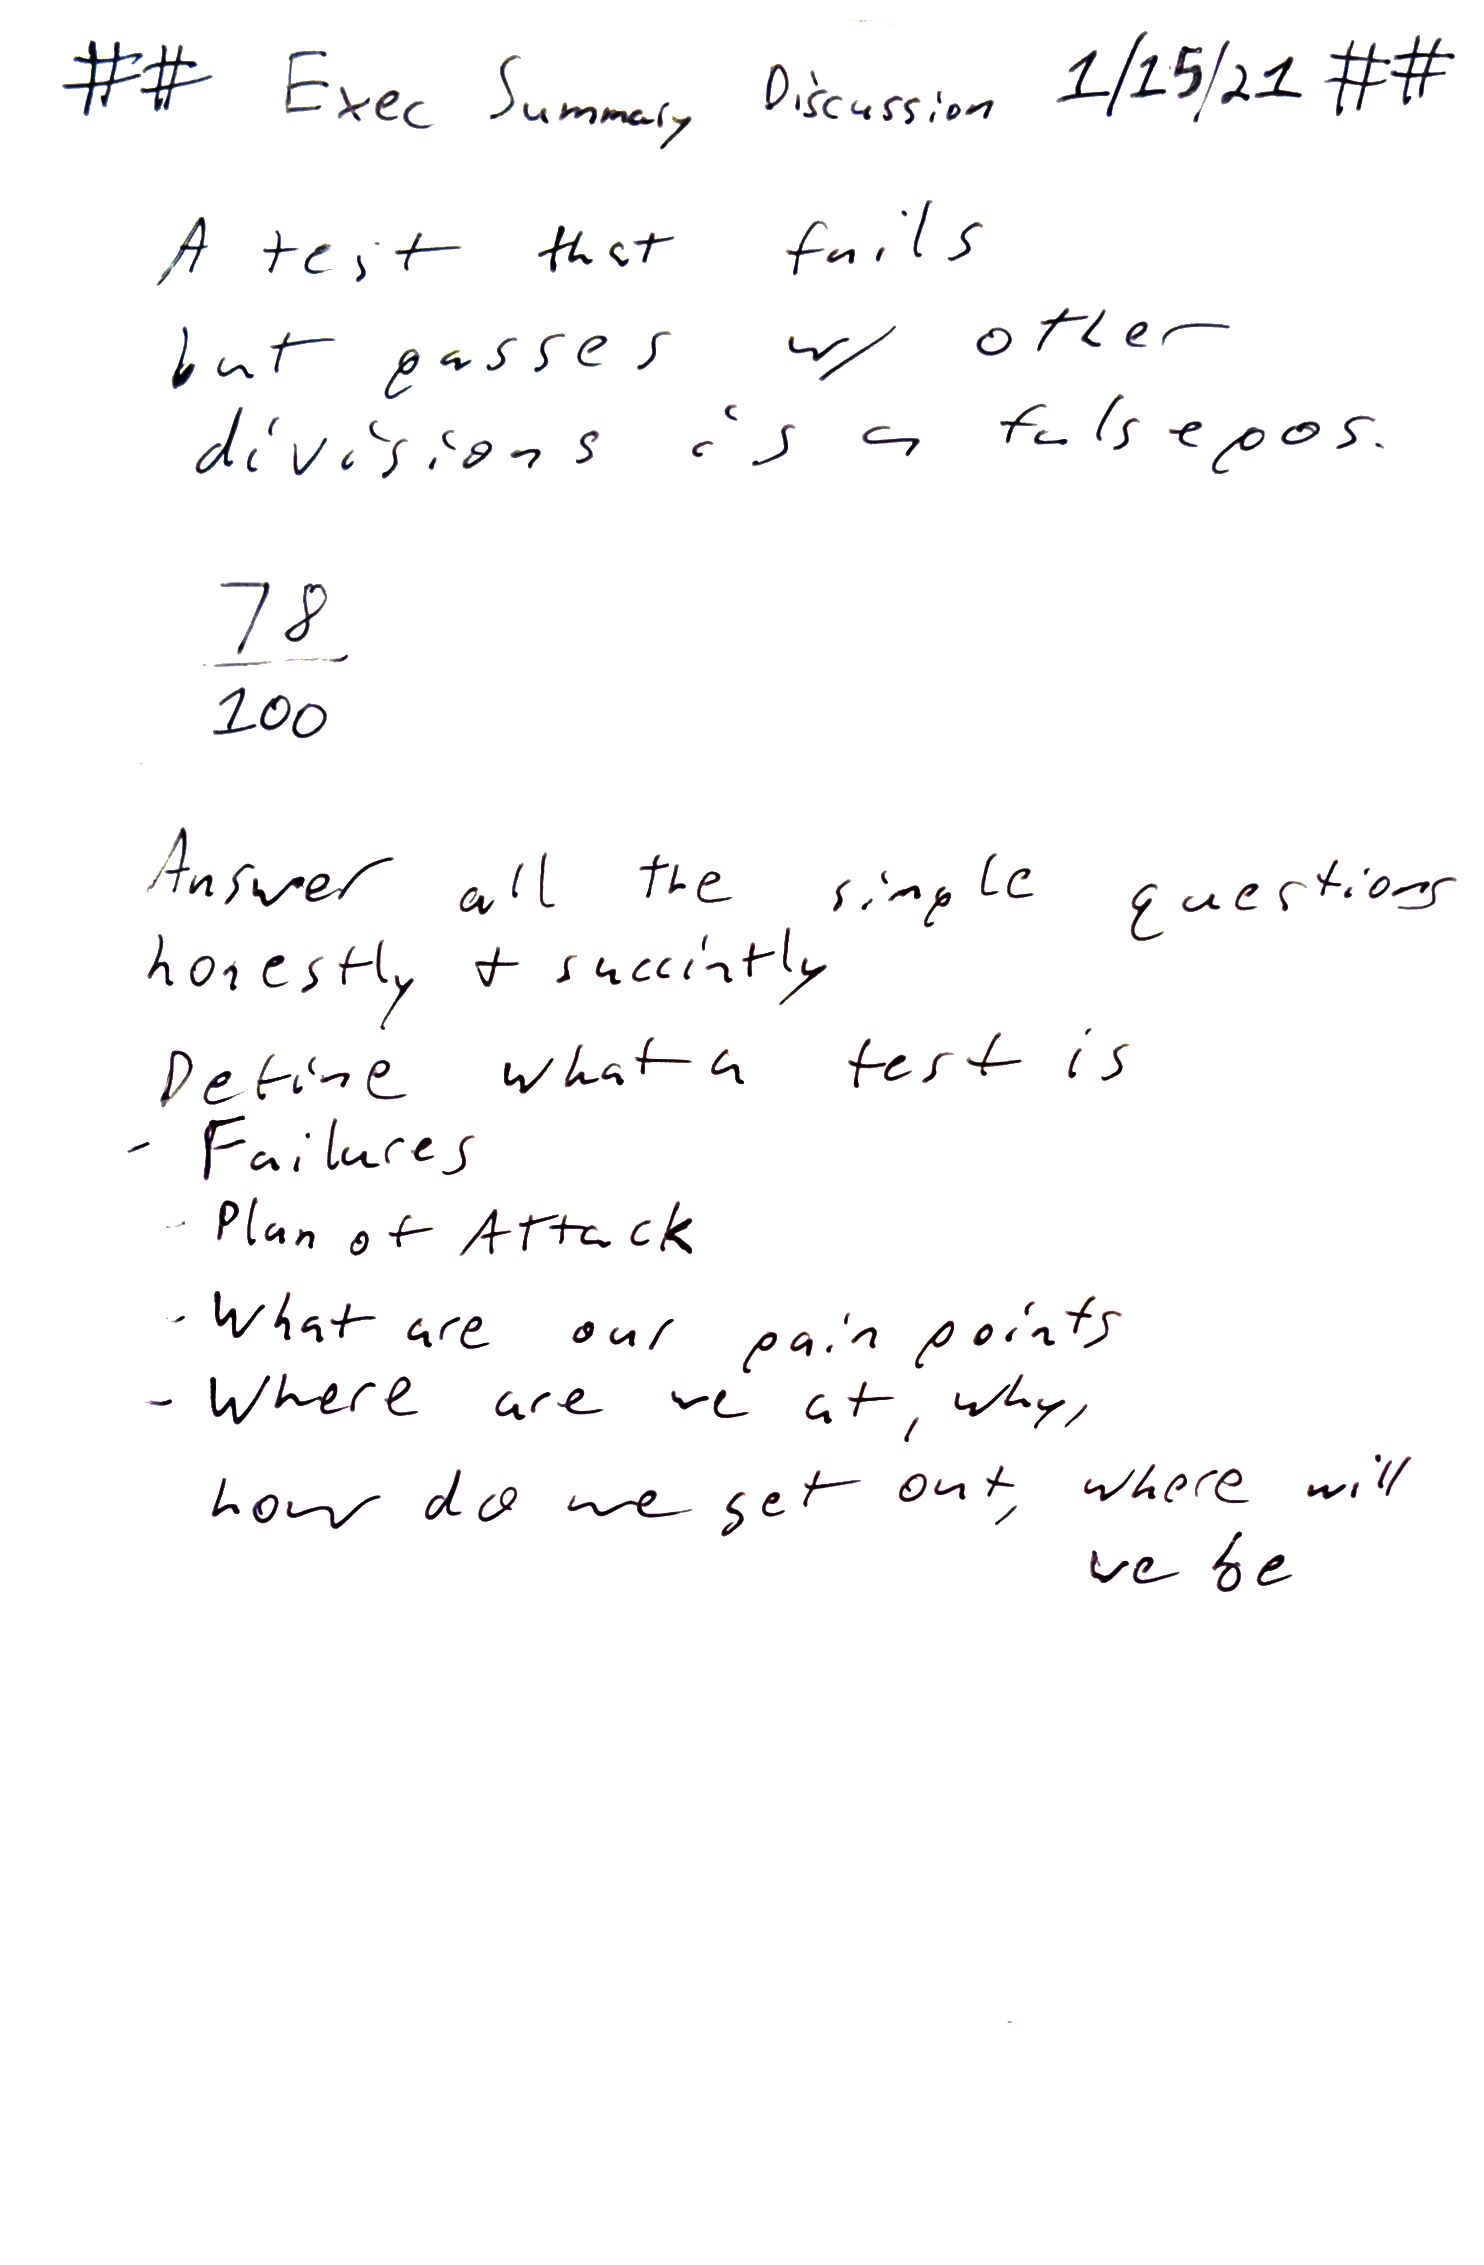 ## Exec Summary Discussion 1/15/21 ##
A test that fails
but passes w/ other
divisions is a falsepos.
78
100
Answer all the simple questions
honestly & succintly
Define what a test is
- Failures
- Plan of Attack
- What are our pain points
- Where are we at, why,
how do we get out, where will
we be